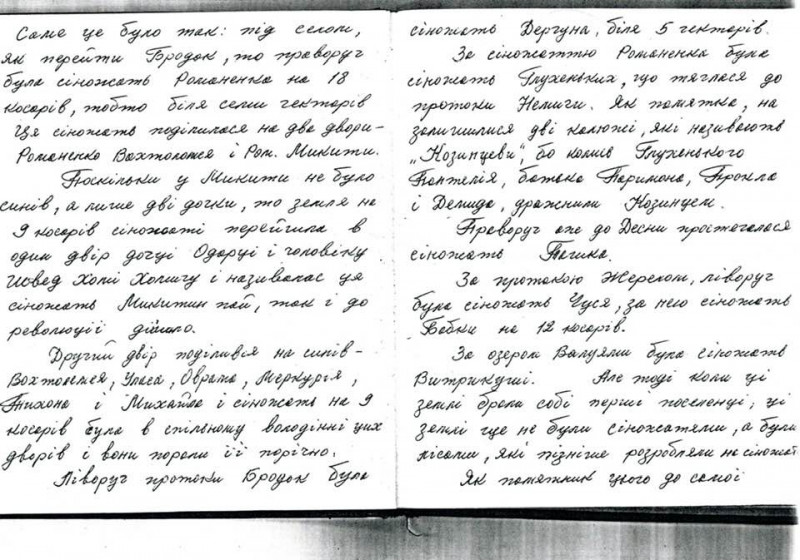 Саме це було так: під селом,
як перейти Бродок, то праворуч
була сіножать Романенка на 18
косарів, тобто біля семи гектарів
Ця сіножать поділилася на два двори-
Романенко Вохтоломея і Ром. Микити.
Поскільки у Микити не було
синів, а лише дві дочки, то земля на
9 косарів сіножаті перейшла в
один двір дочці Одарці і чоловіку
Хомі і називалас ця
сіножать Микитин пай, так і до
революції дійшло.
Другий двір поділився на синів-
Вохтоломея, Уласа, Оврама, Меркурія,
Тихона і Михайла і сіножать на 9
косарів була в спільному володінні цих
дворів і вони пороли її порічно.
Ліворуч протоки Бродок була
сіножать Дергуна, біля 5 гектарів.
За сіножаттю Романенка була
сіножать Глухеньких, що тяглася до
протоки Немиги. Як памятка, на
залишилися дві калюжі, які називають
„Козинцеви", бо колись Глухенького
Пантелія, батька Паримона, Прокла
і Демида, дражнили Козинцем.
Праворуч аже до Десни простягалася
сіножать Пегика.
За протокою Жерелом, ліворуч
була сіножать Чуся, за нею сіножать
Бабки на 12 косарів.
За озером Валуями була сіножать
Витрикуші. Але тоді коли ці
землі брали собі перші поселенці, ці
землі ще не були сіножатями, а були
лісами, які пізніше розробляли на сіножаті
Як памятник цього до самої